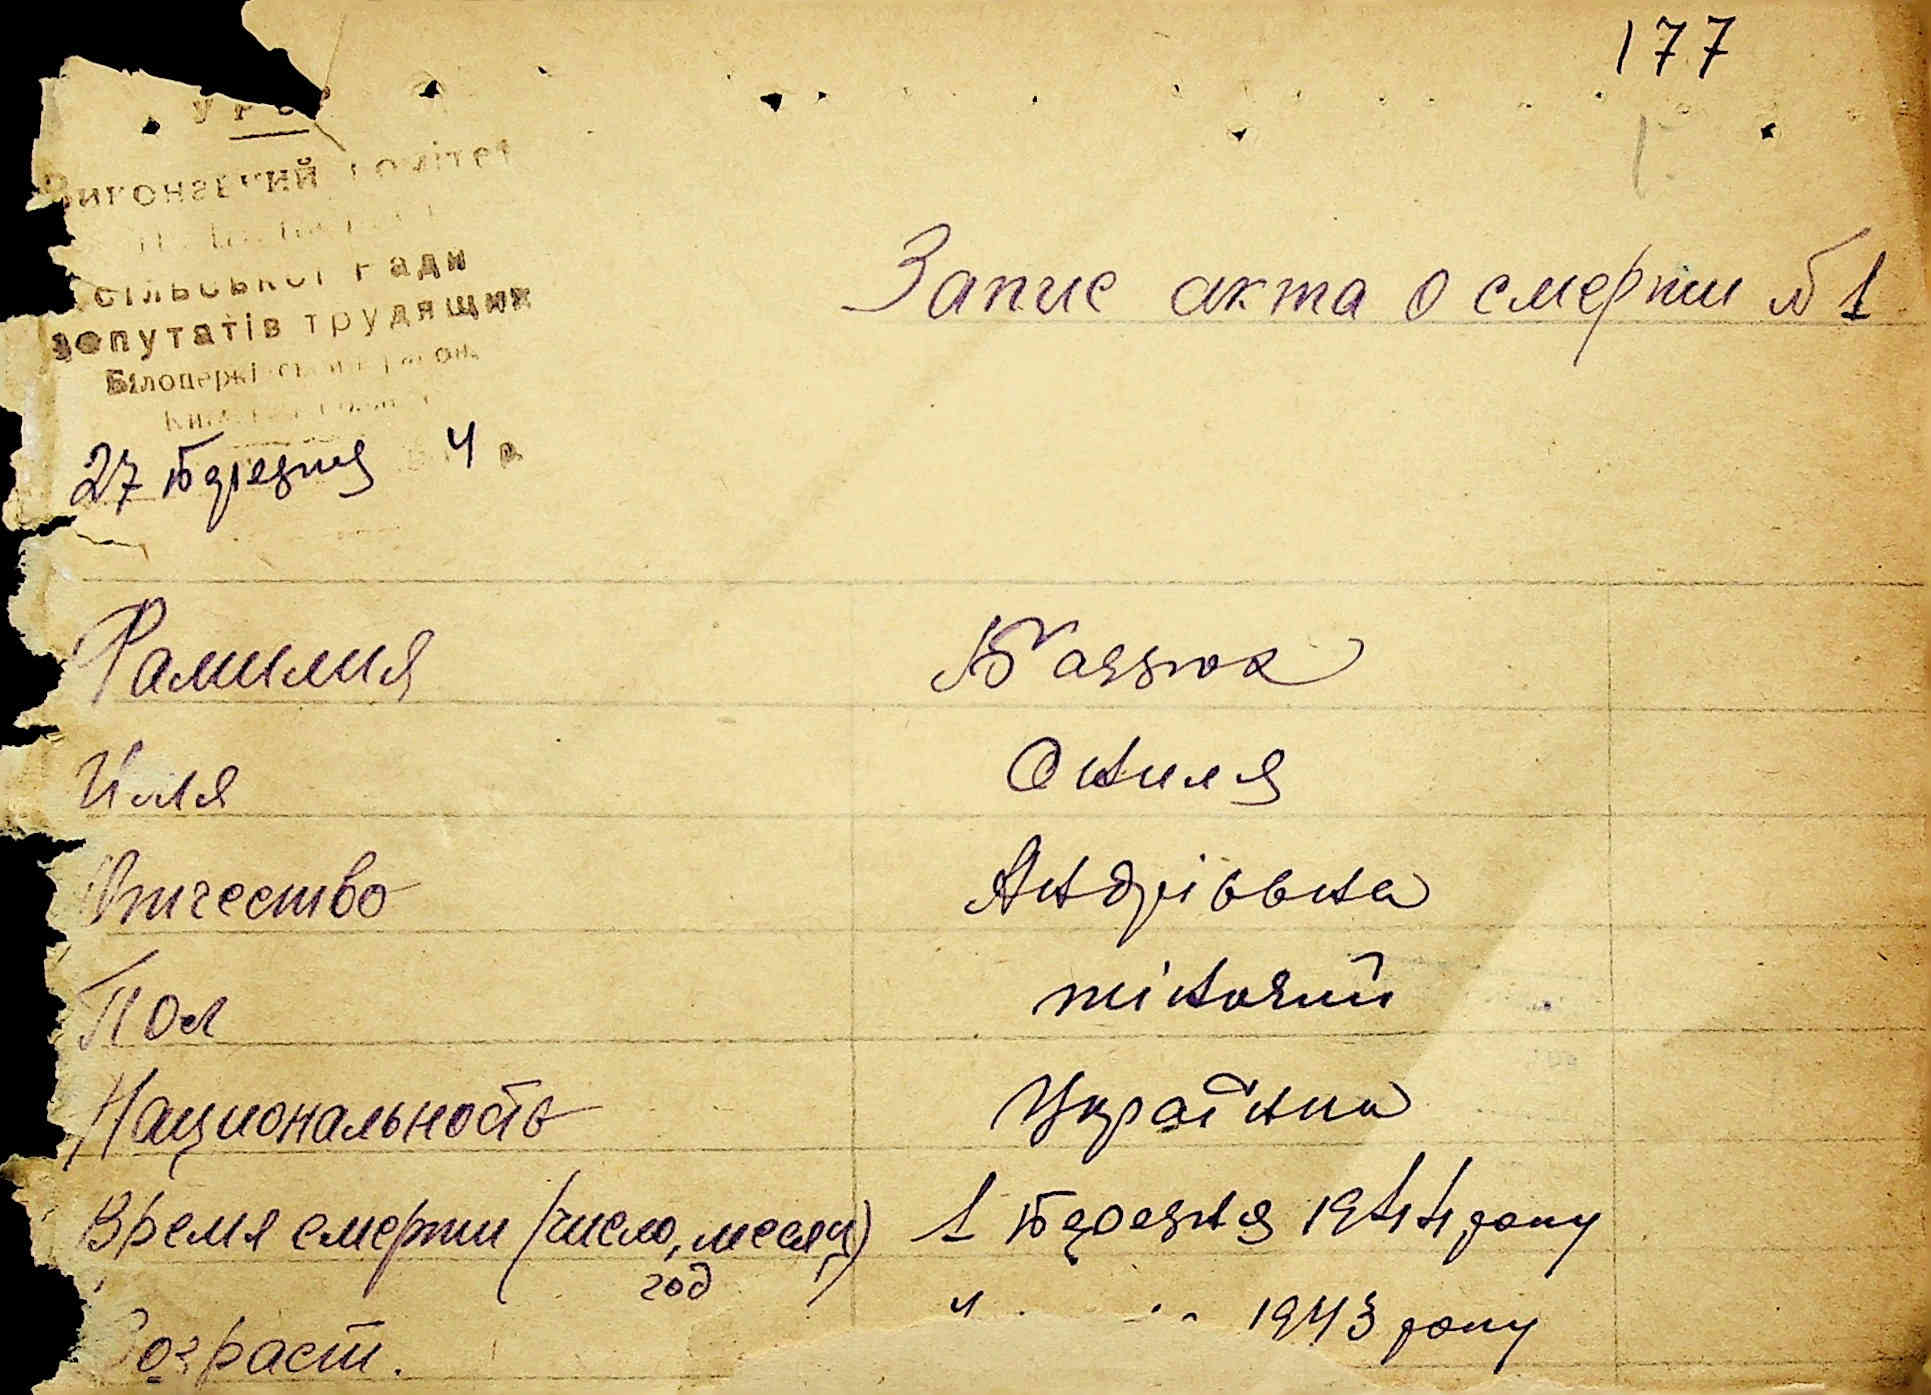 177
УРСР
Виконавчий Комітет
сільської Ради
депутатів трудящих
Білоцерківського району
27 березня 4 р.
Запис акта о смерти № 1
Фамилия
Имя
Ониля
Отчество
Андріівна
Пол
жіночий
Национальность
Українка
Время смерти (число, месяц) 1 березня 1944 року
год
Возраст. " 1943 року